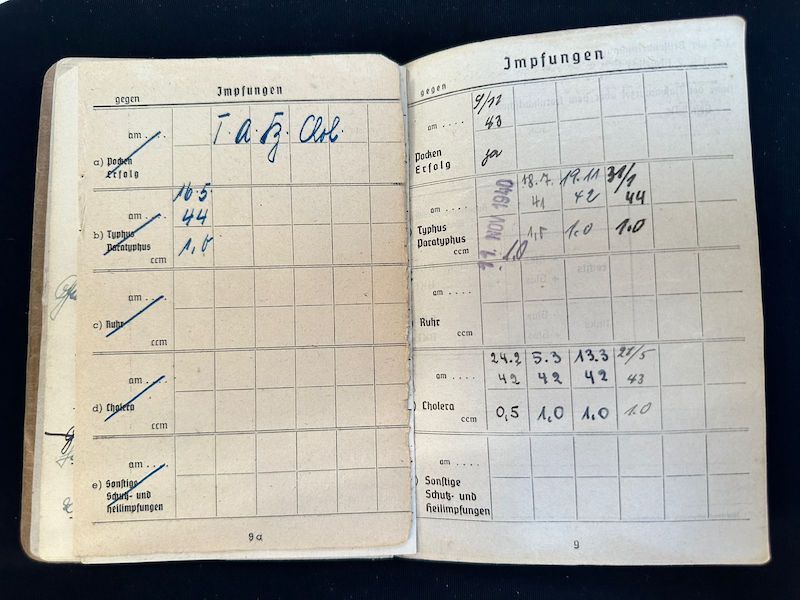 Impfungen
gegen
T. A. Fg. Chol.
am ....
a) Pocken
Erfolg
16.5
44
am ....
b) Typhus
Paratyphus
1,0
ccm
am ....
c) Ruhr
ccm
am ....
d) Cholera
ccm
am ....
e) Sonstige
Schutz- und
Heilimpfungen
9a
Impfungen
gegen
9/12
am .... 43
Pocken
Erfolg ja
19. NOV 1940 18.7. 19.11 31/1
am .... 41 42 44
Typhus
Paratyphus
ccm 1,0 1,5 1.0 1.0
am ....
) Ruhr
ccm
24.2 5.3 13.3 21/5
am .... 42 42 42 43
) Cholera
ccm 0,5 1,0 1.0 1.0
am ....
) Sonstige
Schutz- und
Heilimpfungen
9